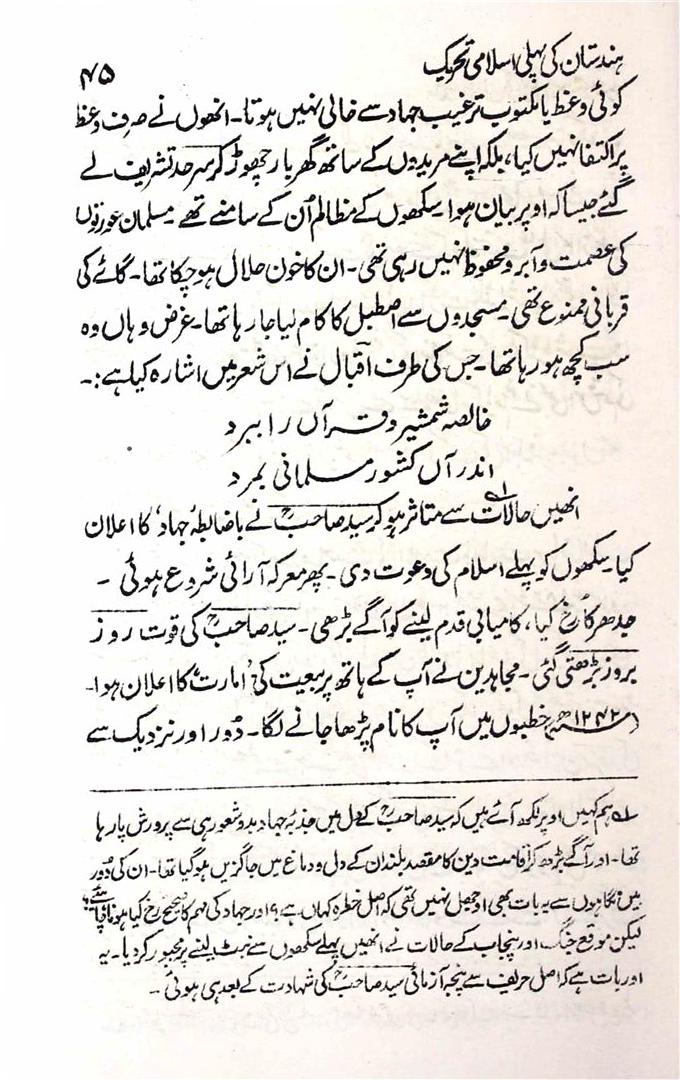 ہندستان کی پہلی اسلامی تحریک ۴۵
کوئی وعظ یا مکتوب ترغیب جہاد سے خالی نہیں ہوتا۔ انھوں نے صرف وعظ
پر اکتفا نہیں کیا، بلکہ اپنے مریدوں کے ساتھ گھر بار چھوڑ کر سرحد تشریف لے
گئے جیسا کہ اوپر بیان ہوا۔ سکھوں کے مظالم اُن کے سامنے تھے۔ مسلمان عورتوں
کی عصمت و آبرو محفوظ نہیں رہی تھی۔ ان کا خون حلال ہو چکا تھا۔ گائے کی
قربانی ممنوع تھی۔ مسجدوں سے اصطبل کا کام لیا جا رہا تھا۔ غرض وہاں وہ
سب کچھ ہو رہا تھا۔ جس کی طرف اقبال نے اس شعر میں اشارہ کیا ہے:۔
خالصہ شمشیر و قرآں را ببرد
اندر آں کشور مسلمانی بمرد
انھیں حالات۱ سے متاثر ہو کر سید صاحبؒ نے باضابطہ ’جہاد‘ کا اعلان
کیا۔ سکھوں کو پہلے اسلام کی دعوت دی۔ پھر معرکہ آرائی شروع ہوئی ۔
جدھر کا رخ کیا، کامیابی قدم لینے کو آگے بڑھی۔ سید صاحبؒ کی قوت روز
بروز بڑھتی گئی۔ مجاہدین نے آپ کے ہاتھ پر بیعت کی ’امارت‘ کا اعلان ہوا۔
(۱۲۴۲ھ) خطبوں میں آپ کا نام پڑھا جانے لگا۔ دُور اور نزدیک سے
۱ ہم کہیں اوپر لکھ آئے ہیں کہ سید صاحبؒ کے دل میں جذبۂ جہاد بدو شعور ہی سے پرورش پا رہا
تھا۔ اور آگے بڑھ کر اقامت دین کا مقصد بلند ان کے دل و دماغ میں جاگزیں ہو گیا تھا۔ ان کی دُور
بیں نگاہوں سے یہ بات بھی اوجھل نہیں تھی کہ اصل خطرہ کہاں ہے؟ اور جہاد کی مہم کا صحیح رخ کیا ہونا چاہئے؟
لیکن موقع جنگ اور پنجاب کے حالات نے انھیں پہلے سکھوں سے نبٹ لینے پر مجبور کر دیا۔ یہ
اور بات ہے کہ اصل حریف سے پنجہ آزمائی سید صاحبؒ کی شہادت کے بعد ہی ہوئی ۔